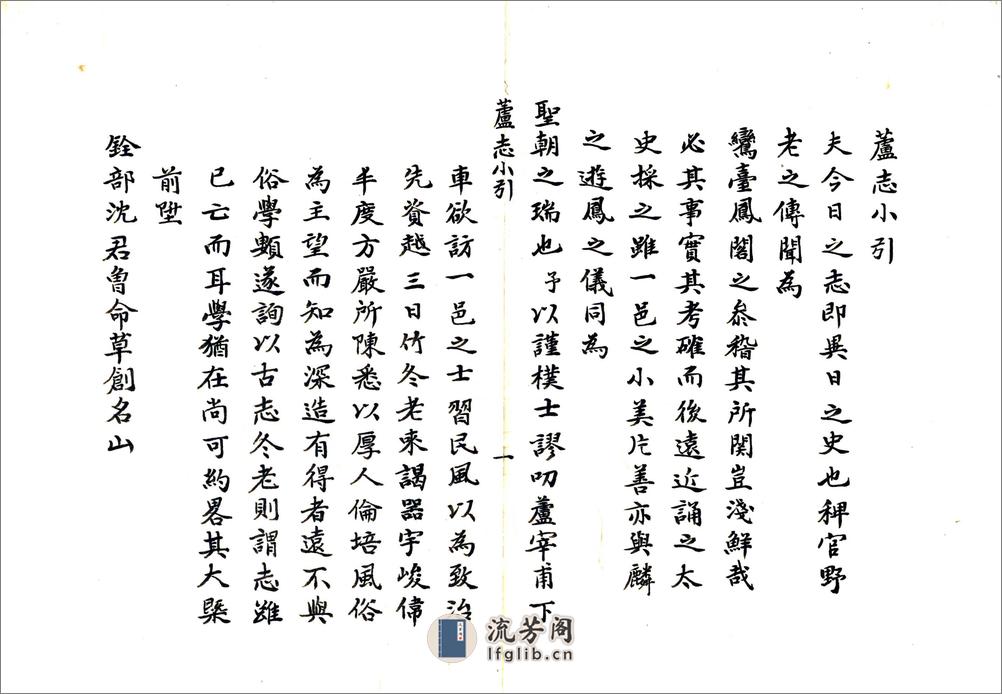 蘆志小引
夫今日之志即異日之史也稗官野
老之傳聞為
鸞臺鳳閣之叅稽其所関豈淺鮮哉
必其事實其考確而後遠近誦之太
史採之雖一邑之小美片善亦與麟
之遊鳳之儀同為
聖朝之瑞也予以謹樸士謬叨蘆宰甫下
蘆志小引
一
車欲訪一邑之士習民風以為致治
先資越三日竹冬老來謁器宇峻偉
半度方嚴所陳悉以厚人倫培風俗
為主望而知為深造有得者遠不與
俗學類遂詢以古志冬老則謂志雖
已亡而耳學猶在尚可約畧其大槩
前陞
銓部沈君魯命草創名山
流芳阁
lfglib.cn